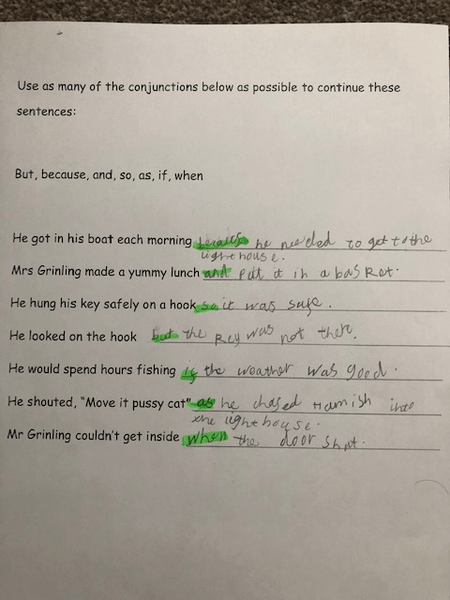 Use as many of the conjunctions below as possible to continue these
sentences:
But, because, and, so, as, if, when
He got in his boat each morning because he needed to get to the
lighthouse.
Mrs Grinling made a yummy lunch and put it in a basket.
He hung his key safely on a hook so it was safe.
He looked on the hook but the key was not there.
He would spend hours fishing if the weather was good.
He shouted, "Move it pussy cat" as he chased Hamish into
the lighthouse.
Mr Grinling couldn't get inside when the door shut.